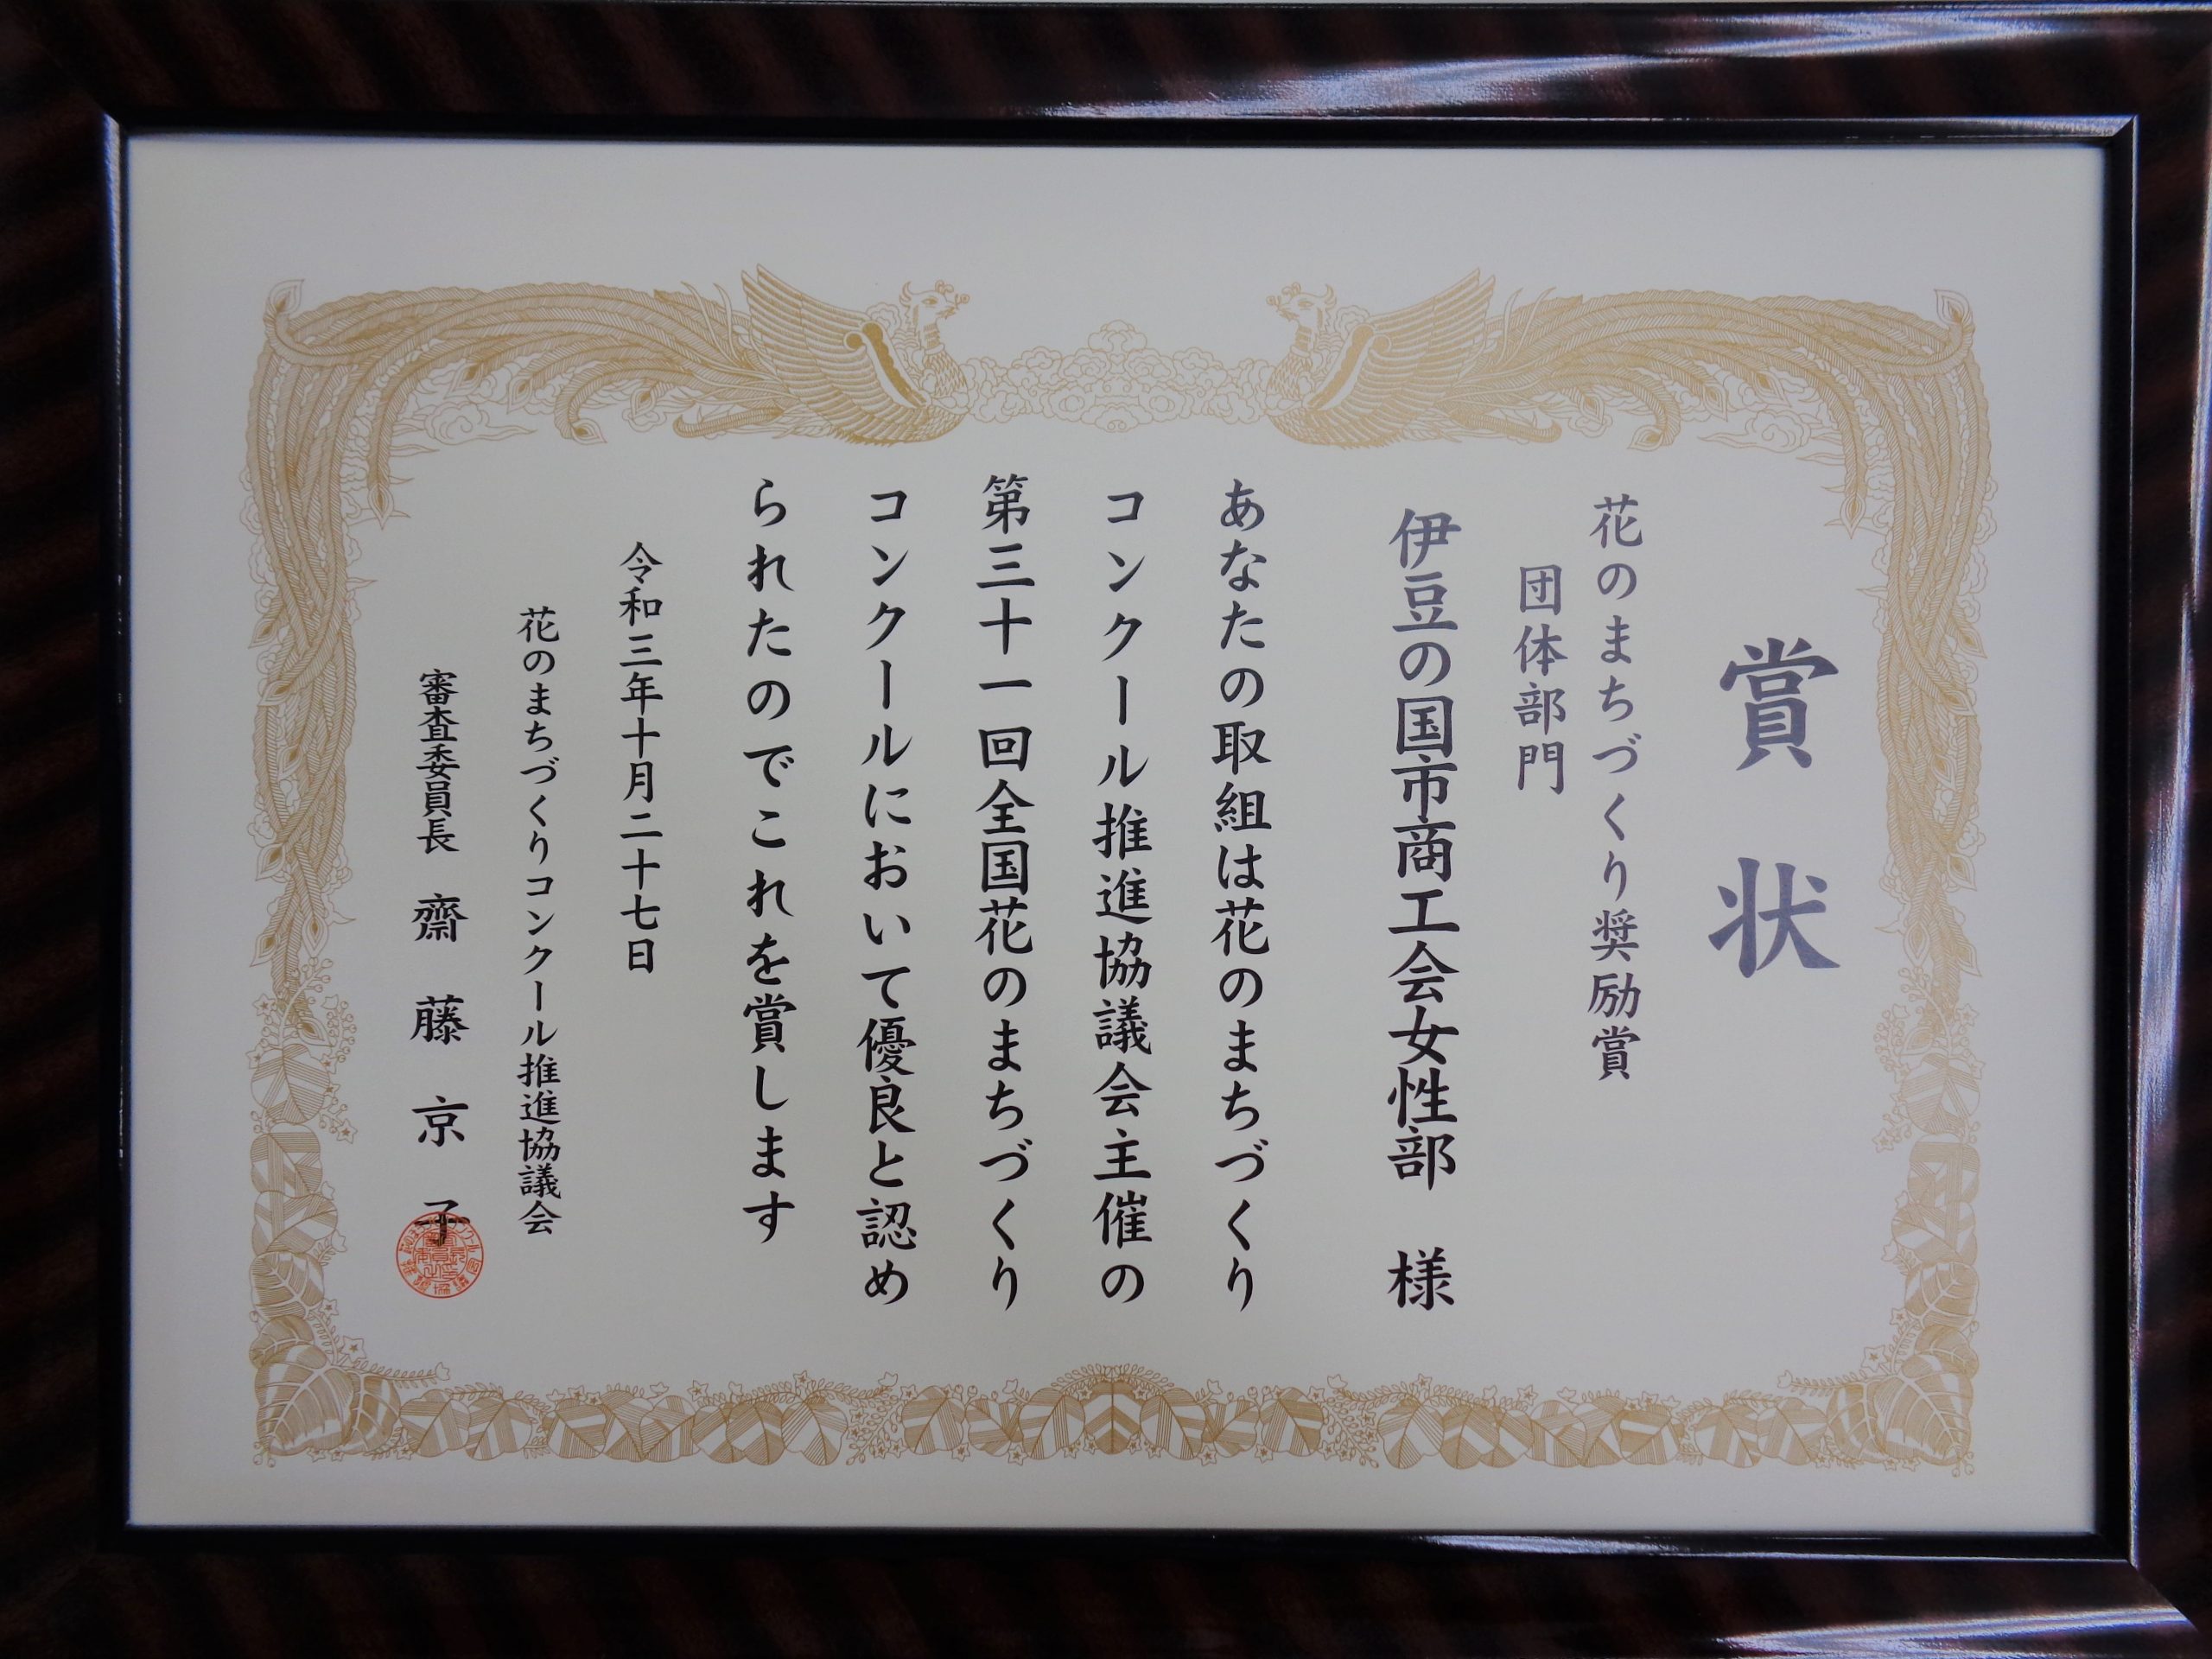 賞状
花のまちづくり奨励賞
団体部門
伊豆の国市商工会女性部 様
あなたの取組は花のまちづくり
コンクール推進協議会主催の
第三十一回全国花のまちづくり
コンクールにおいて優良と認め
られたのでこれを賞します
令和三年十月二十七日
花のまちづくりコンクール推進協議会
審査委員長 齋藤京子